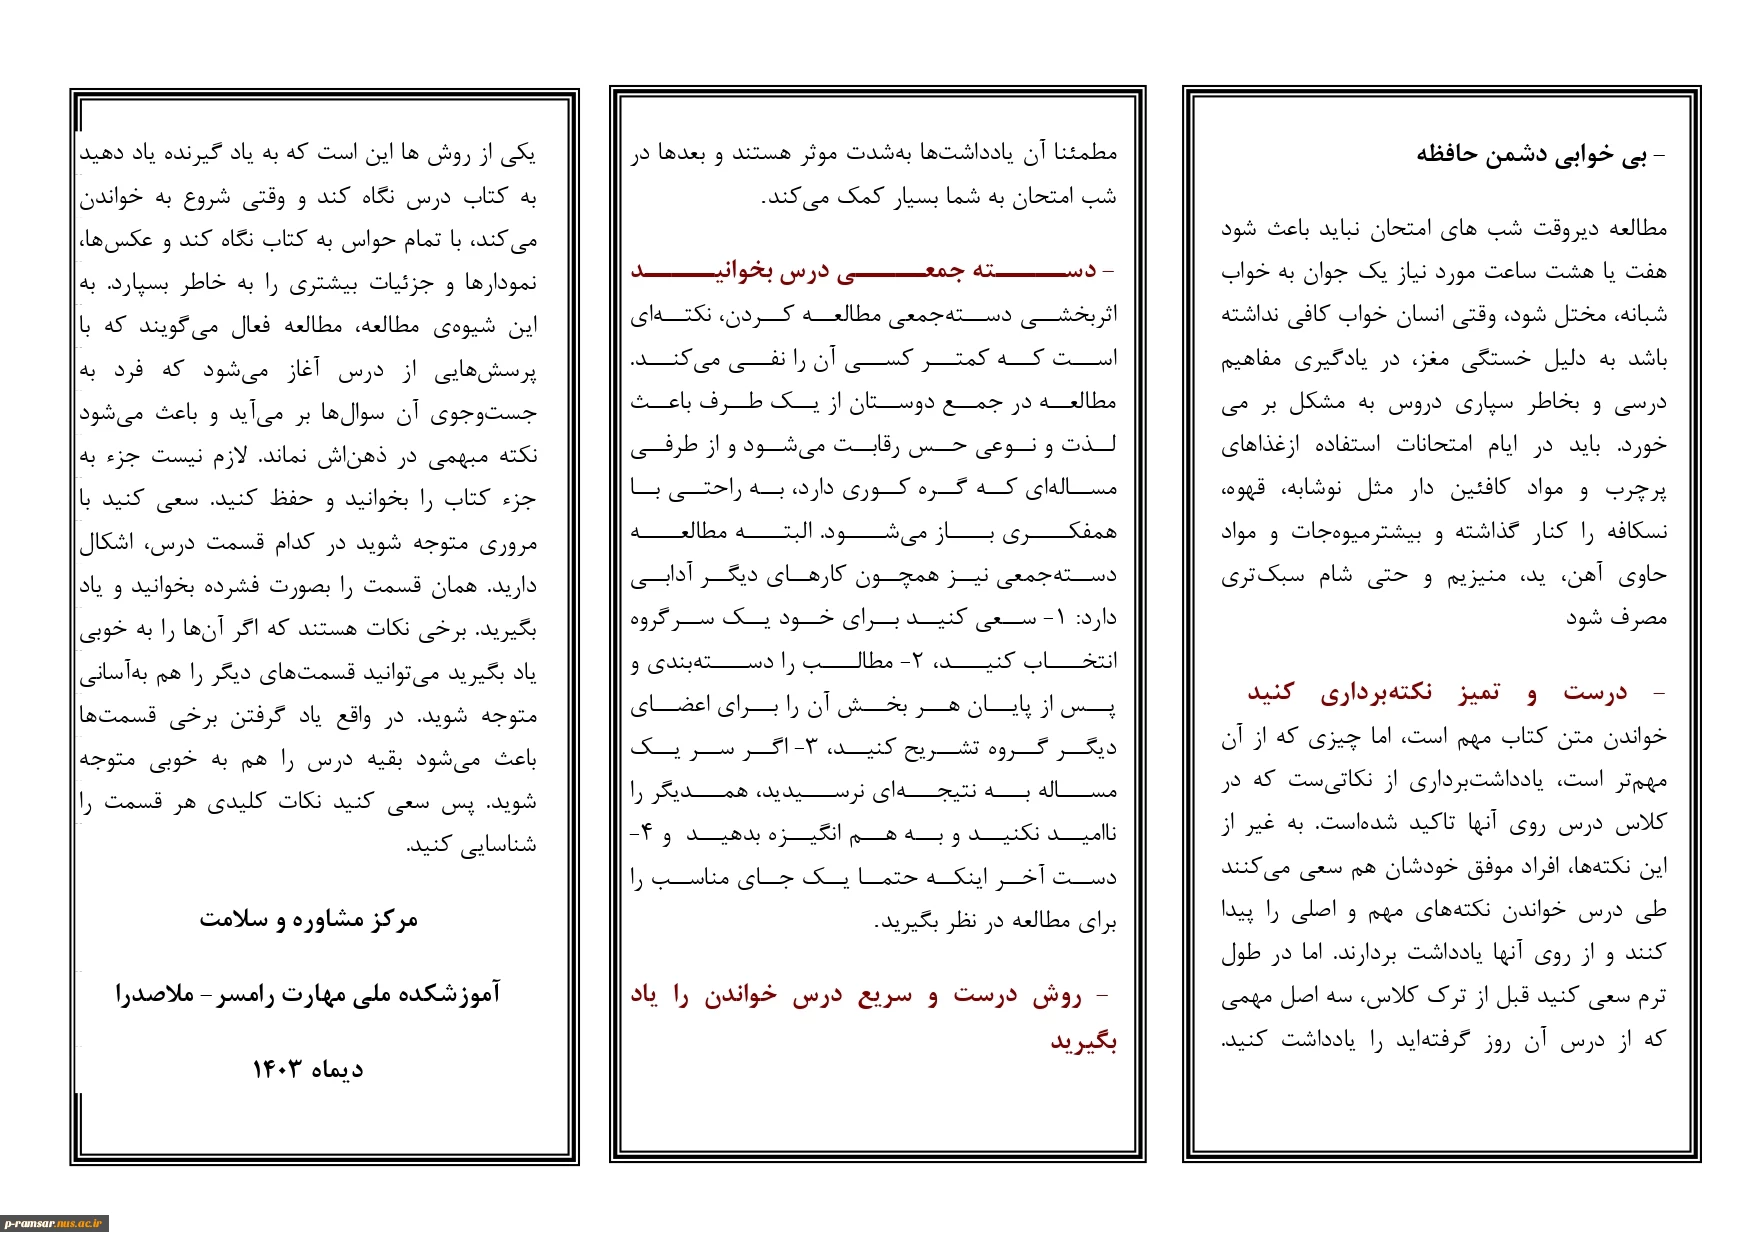 - بی خوابی دشمن حافظه
مطالعه دیروقت شب های امتحان نباید باعث شود
هفت یا هشت ساعت مورد نیاز یک جوان به خواب
شبانه، مختل شود، وقتی انسان خواب کافی نداشته
باشد به دلیل خستگی مغز، در یادگیری مفاهیم
درسی و بخاطر سپاری دروس به مشکل بر می
خورد. باید در ایام امتحانات استفاده ازغذاهای
پرچرب و مواد کافئین دار مثل نوشابه، قهوه،
نسکافه را کنار گذاشته و بیشترمیوه‌جات و مواد
حاوی آهن، ید، منیزیم و حتی شام سبک‌تری
مصرف شود
- درست و تمیز نکته‌برداری کنید
خواندن متن کتاب مهم است، اما چیزی که از آن
مهم‌تر است، یادداشت‌برداری از نکاتی‌ست که در
کلاس درس روی آنها تاکید شده‌است. به غیر از
این نکته‌ها، افراد موفق خودشان هم سعی می‌کنند
طی درس خواندن نکته‌های مهم و اصلی را پیدا
کنند و از روی آنها یادداشت بردارند. اما در طول
ترم سعی کنید قبل از ترک کلاس، سه اصل مهمی
که از درس آن روز گرفته‌اید را یادداشت کنید.
مطمئنا آن یادداشت‌ها به‌شدت موثر هستند و بعدها در
شب امتحان به شما بسیار کمک می‌کند.
- دسته جمعی درس بخوانید
اثربخشی دسته‌جمعی مطالعه کردن، نکته‌ای
است که کمتر کسی آن را نفی می‌کند.
مطالعه در جمع دوستان از یک طرف باعث
لذت و نوعی حس رقابت می‌شود و از طرفی
مساله‌ای که گره کوری دارد، به راحتی با
همفکری باز می‌شود. البته مطالعه
دسته‌جمعی نیز همچون کارهای دیگر آدابی
دارد: ۱- سعی کنید برای خود یک سرگروه
انتخاب کنید، ۲- مطالب را دسته‌بندی و
پس از پایان هر بخش آن را برای اعضای
دیگر گروه تشریح کنید، ۳- اگر سر یک
مساله به نتیجه‌ای نرسیدید، همدیگر را
ناامید نکنید و به هم انگیزه بدهید و ۴-
دست آخر اینکه حتما یک جای مناسب را
برای مطالعه در نظر بگیرید.
- روش درست و سریع درس خواندن را یاد
بگیرید
یکی از روش ها این است که به یاد گیرنده یاد دهید
به کتاب درس نگاه کند و وقتی شروع به خواندن
می‌کند، با تمام حواس به کتاب نگاه کند و عکس‌ها،
نمودارها و جزئیات بیشتری را به خاطر بسپارد. به
این شیوه‌ی مطالعه، مطالعه فعال می‌گویند که با
پرسش‌هایی از درس آغاز می‌شود که فرد به
جست‌وجوی آن سوال‌ها بر می‌آید و باعث می‌شود
نکته مبهمی در ذهن‌اش نماند. لازم نیست جزء به
جزء کتاب را بخوانید و حفظ کنید. سعی کنید با
مروری متوجه شوید در کدام قسمت درس، اشکال
دارید. همان قسمت را بصورت فشرده بخوانید و یاد
بگیرید. برخی نکات هستند که اگر آن‌ها را به خوبی
یاد بگیرید می‌توانید قسمت‌های دیگر را هم به‌آسانی
متوجه شوید. در واقع یاد گرفتن برخی قسمت‌ها
باعث می‌شود بقیه درس را هم به خوبی متوجه
شوید. پس سعی کنید نکات کلیدی هر قسمت را
شناسایی کنید.
مرکز مشاوره و سلامت
آموزشکده ملی مهارت رامسر- ملاصدرا
دیماه ۱۴۰۳
p-ramsar.nus.ac.ir